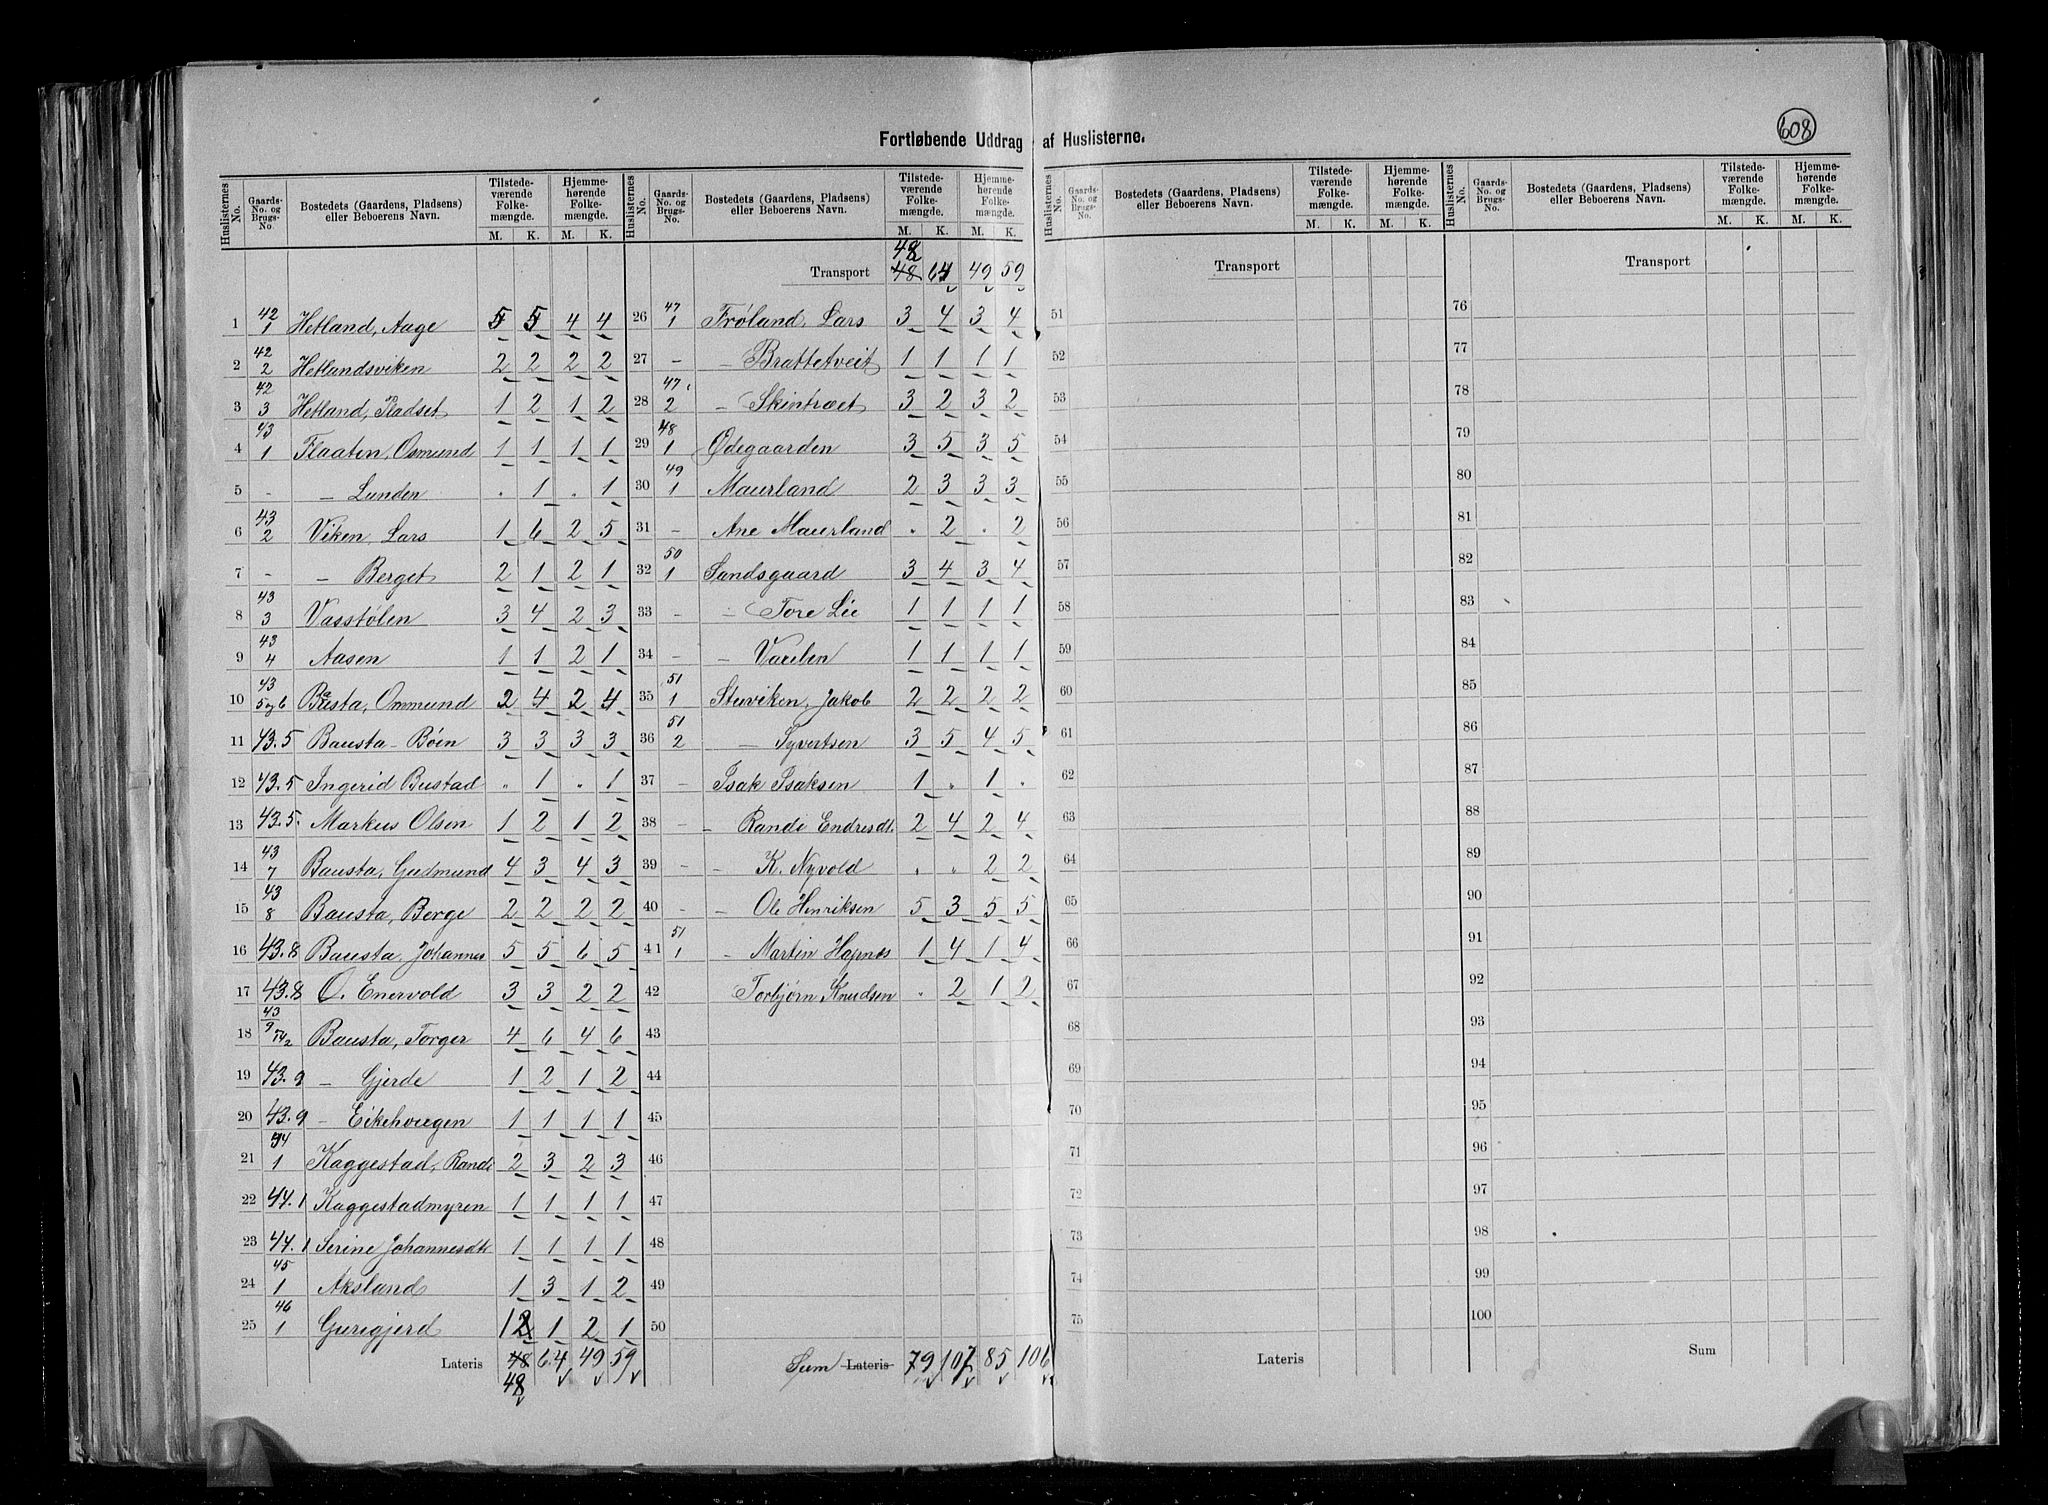 608
Fortløbende Uddrag af Huslisterne.
Huslisternes No. Gaards-No. og Brugs-No. Bostedets (Gaardens, Pladsens) eller Beboerens Navn. Tilstedeværende Folkemængde. M. K. Hjemmehørende Folkemængde. M. K.
1 42 1 Hetland, Aage 5 5 4 4
2 42 2 Hetlandsviken 2 2 2 2
3 42 3 Hetland, Pladset 1 2 1 2
4 43 1 Flaaten, Osmund 1 1 1 1
5 - - Lunden " 1 " 1
6 43 2 Viken Lars 1 6 2 5
7 - - Berget 2 1 2 1
8 43 3 Vasstølen 3 4 2 3
9 43 4 Aasen 1 1 2 1
10 43 5 og 6 Bausta, Ommund 2 4 2 4
11 43.5 Bausta - Bøen 3 3 3 3
12 43.5 Ingerid Bustad " 1 " 1
13 43.5. Markus Olsen 1 2 1 2
14 43 7 Bausta, Gudmund 4 3 4 3
15 43 8 Bausta, Berge 2 2 2 2
16 43.8 Bausta, Johannes 5 5 6 5
17 43.8 O. Enervold 3 3 2 2
18 43 9 Bausta, Torger 4 6 4 6
19 43.9 - Gjerde 1 2 1 2
20 43.9 - Eikehougen 1 1 1 1
21 44 1 Kaggestad, Rand. 2 3 2 3
22 44.1 Kaggestadmyren 1 1 1 1
23 44.1 Serine Johannesdtr 1 1 1 1
24 45 1 Aksland 1 3 1 2
25 46 1 Gurigjerd 1 2 1 2 1
Lateris 48 64 49 59
48
Huslisternes No. Gaards-No. og Brugs-No. Bostedets (Gaardens, Pladsens) eller Beboerens Navn. Tilstedeværende Folkemængde. M. K. Hjemmehørende Folkemængde. M. K.
48
Transport 48 64 49 59
26 47 1 Frøland, Lars 3 4 3 4
27 - - Brattetveit 1 1 1 1
28 47 2 - Skintræet 3 2 3 2
29 48 1 Ødegaarden 3 5 3 5
30 49 1 Maurland 2 3 3 3
31 - Ane Maurland " 2 " 2
32 50 1 Sandsgaard 3 4 3 4
33 - - Tore Lie 1 1 1 1
34 - - Varelen 1 1 1 1
35 51 1 Stuviken, Jakob 2 2 2 2
36 51 2 - Syvertsen 3 5 4 5
37 - Isak Isaksen 1 " 1 "
38 - - Randi Endresdt. 2 4 2 4
39 - - K. Nyvold " " 2 2
40 - - Ole Henriksen 5 3 5 5
41 51 1 - Martin Hapnes 1 4 1 4
42 Torbjørn Knudsen " 2 1 2
43
44
45
46
47
48
49
50
Sum Lateris 79 107 85 106
Huslisternes No. Gaards-No. og Brugs-No. Bostedets (Gaardens, Pladsens) eller Beboerens Navn. Tilstedeværende Folkemængde. M. K. Hjemmehørende Folkemængde. M. K.
Transport
51
52
53
54
55
56
57
58
59
60
61
62
63
64
65
66
67
68
69
70
71
72
73
74
75
Lateris
Huslisternes No. Gaards-No. og Brugs-No. Bostedets (Gaardens, Pladsens) eller Beboerens Navn. Tilstedeværende Folkemængde. M. K. Hjemmehørende Folkemængde. M. K.
Transport
76
77
78
79
80
81
82
83
84
85
86
87
88
89
90
91
92
93
94
95
96
97
98
99
100
Sum